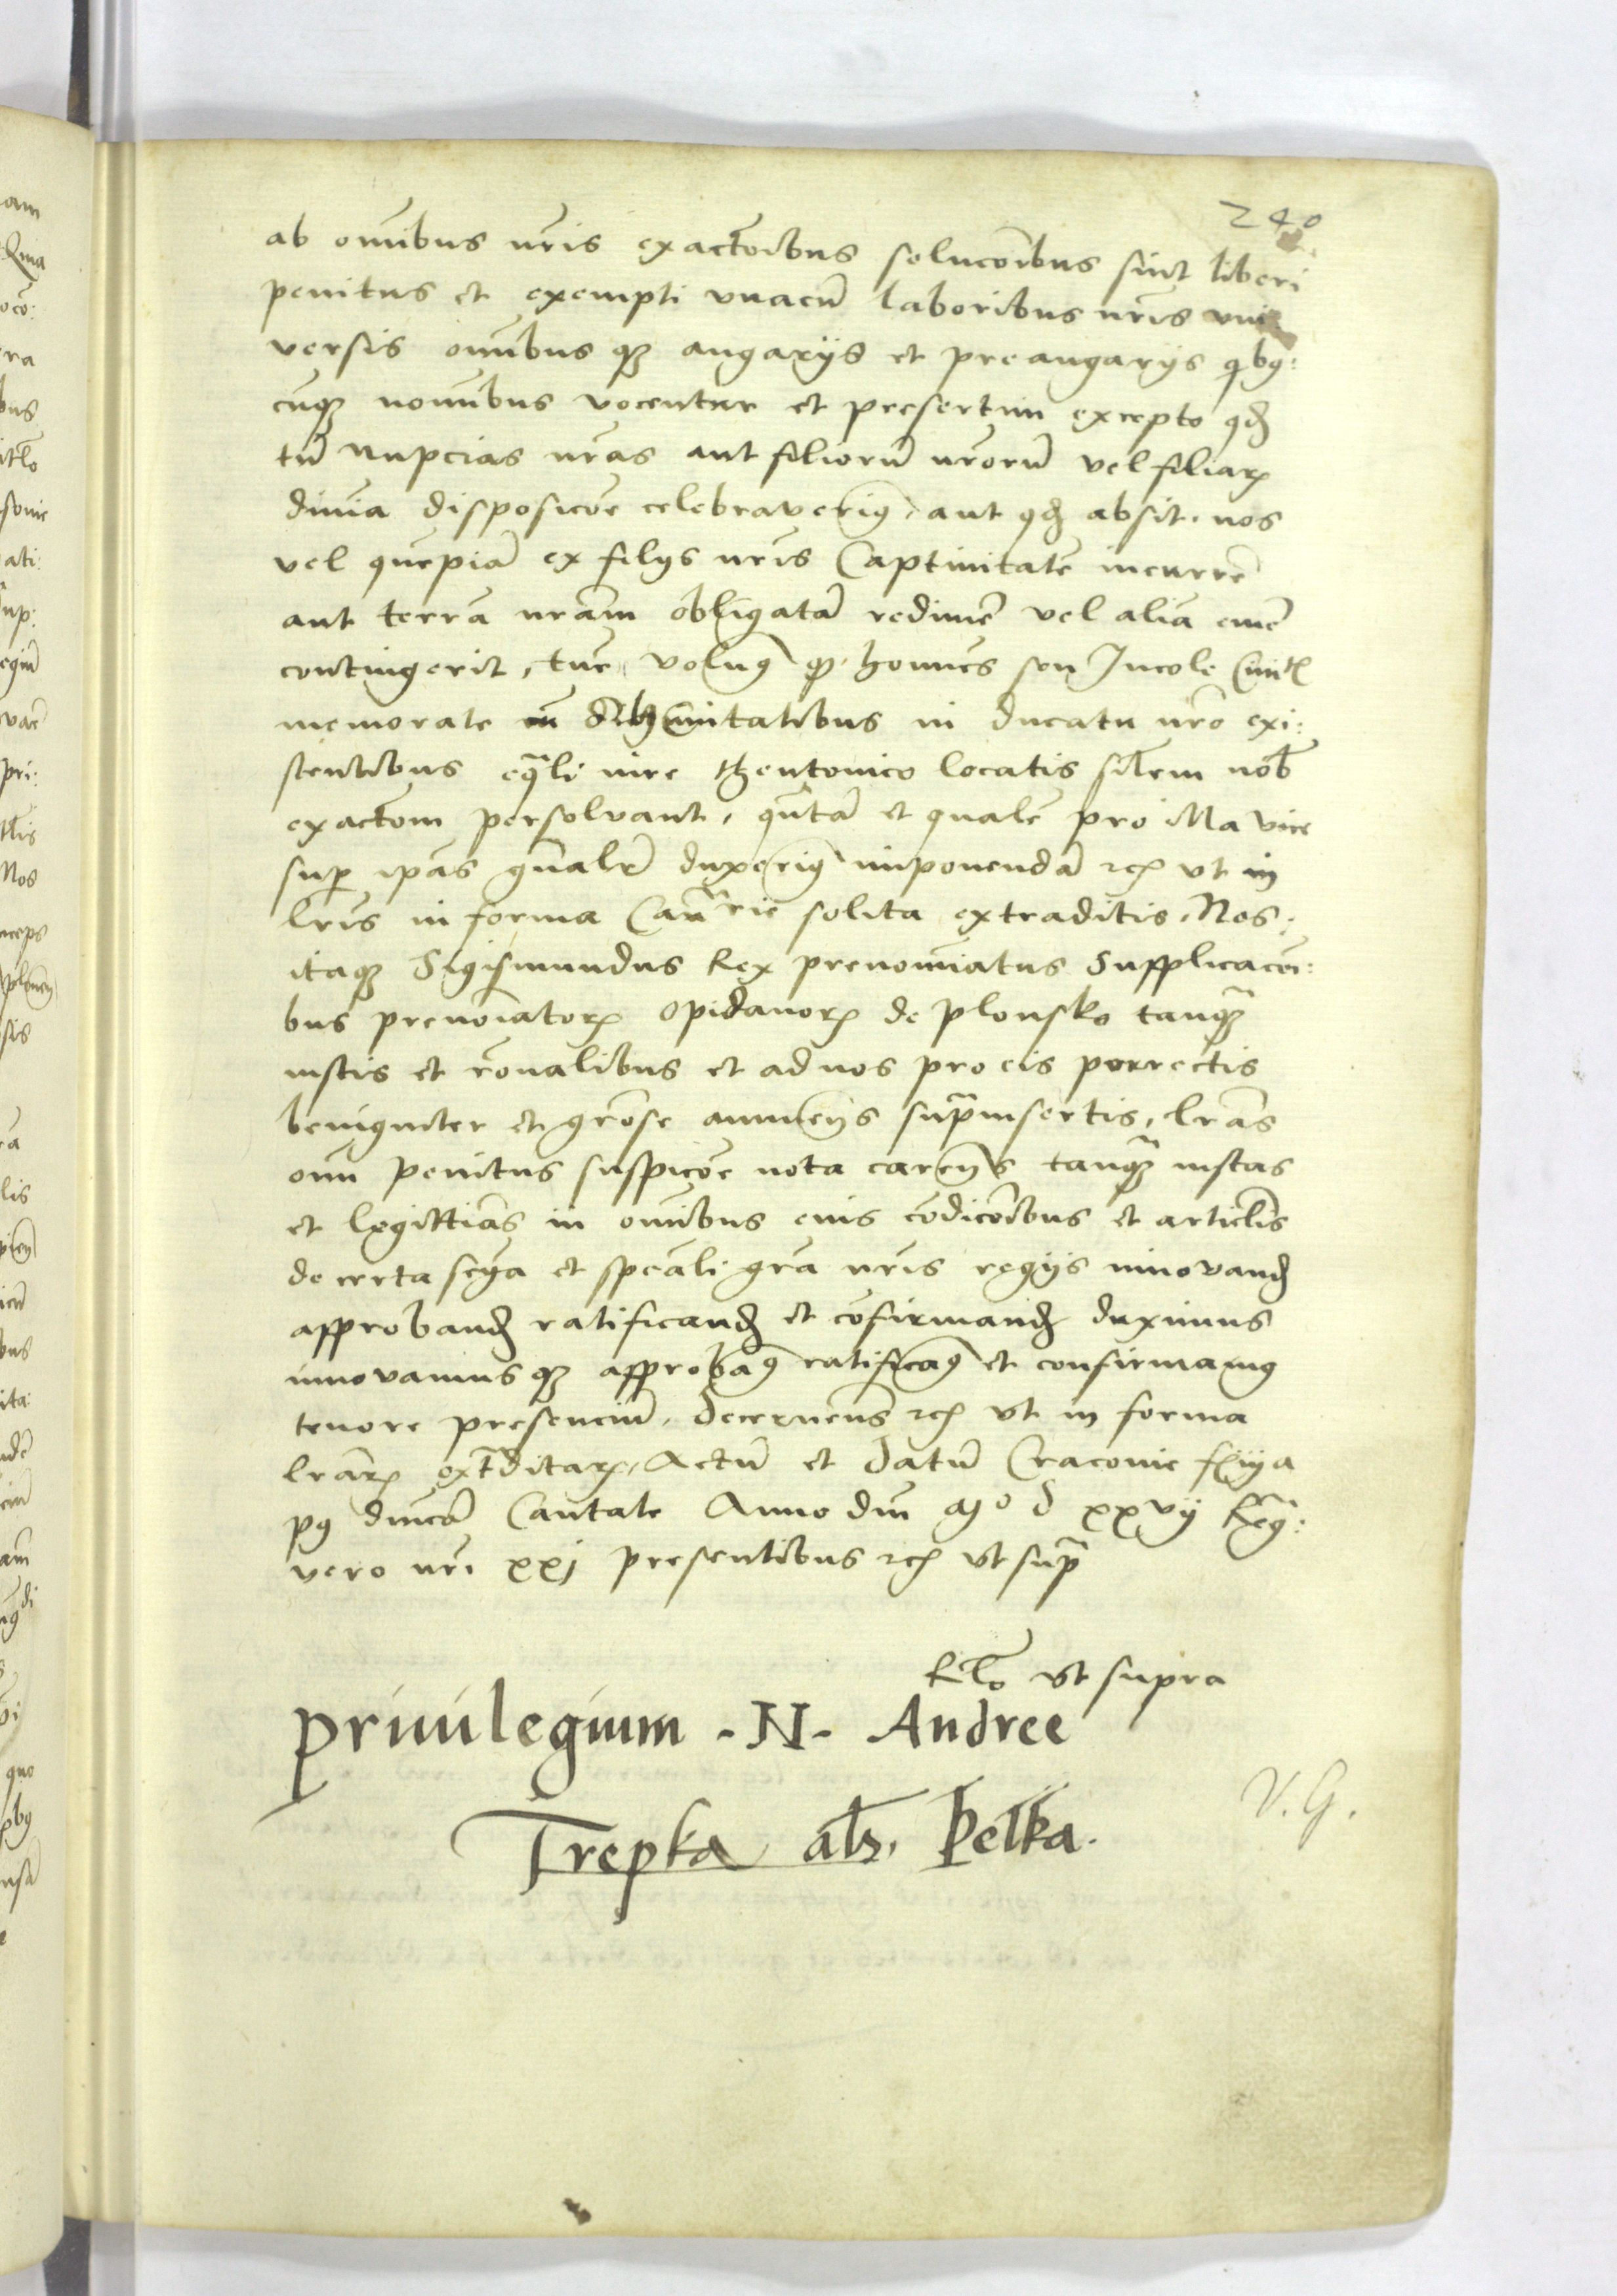 240
ab omĩbus nr̃is exactoĩbus solucoĩbus sint liberi
penitus et exempti vnacũ laboribus nr̃is vni
versis omĩbus qꝫ angarijs et preangarijs qͥbꝯ:
cũqꝫ noĩnibus vocentur et presertim excepto qđ
tũ nupcias nr̃as aut filiorũ nr̃orũ vel filiaꝝ
diuĩa disposicõe celebraverimꝯ, aut qđ absit, nos
vel quẽpiã ex filijs nr̃is Captiuitatẽ incurrẽ
aut terrã nr̃am obligatã redimẽ vel aliã emẽ
contingerit, tũc volumꝯ qꝫ homĩes seu Incole Ciuitꝭ
memorate Ciuitatibus in ducatu nr̃o exi:
stentibus eqͣli iure theutonico locatis sil̃em nob̃
exactõem persolvant, quãtã et qualẽ pro illa vice
sup ip̃as gñalr̃ duxerimꝯ imponendã ꝛcꝭ vt in
lr̃is in forma Cancͣrie solita extraditis, Nos:
itaqꝫ Sigismundus Rex prenoĩatus Supplicacoĩ:
bus prenoĩatorꝝ opidanorꝝ de plonsko tanqͣꝫ
iustis et rõnalibus et ad nos pro eis porrectis
benigniter et grõse annuẽtes supͣinsertis, lr̃as
omĩ penitus suspicõe nota carẽtes tanqͣꝫ iustas
et legittiãs in omĩbus eius cõdicoĩbus et articl̃is
de certa scĩa et speãli grã nr̃is regijs innovanđ
approbanđ ratificanđ et cõfirmanđ duximus
innovamus qꝫ approbamꝯ ratificamꝯ et confirmamꝯ
tenore presenciũ, decernens̃ ꝛcꝭ vt in forma
lr̃arꝝ extͣditarꝝ, Actũ et datũ Cracouie fer̃ iija
pꝯ dñicã Cantate Anno dñi Mº d xxvij Regͥ:
vero nr̃i xxj presentibus ꝛcꝭ vt supͣ
Rl̃o vt supra
Priuilegium - N - Andree
Trepka als. Pelka.
V. G.